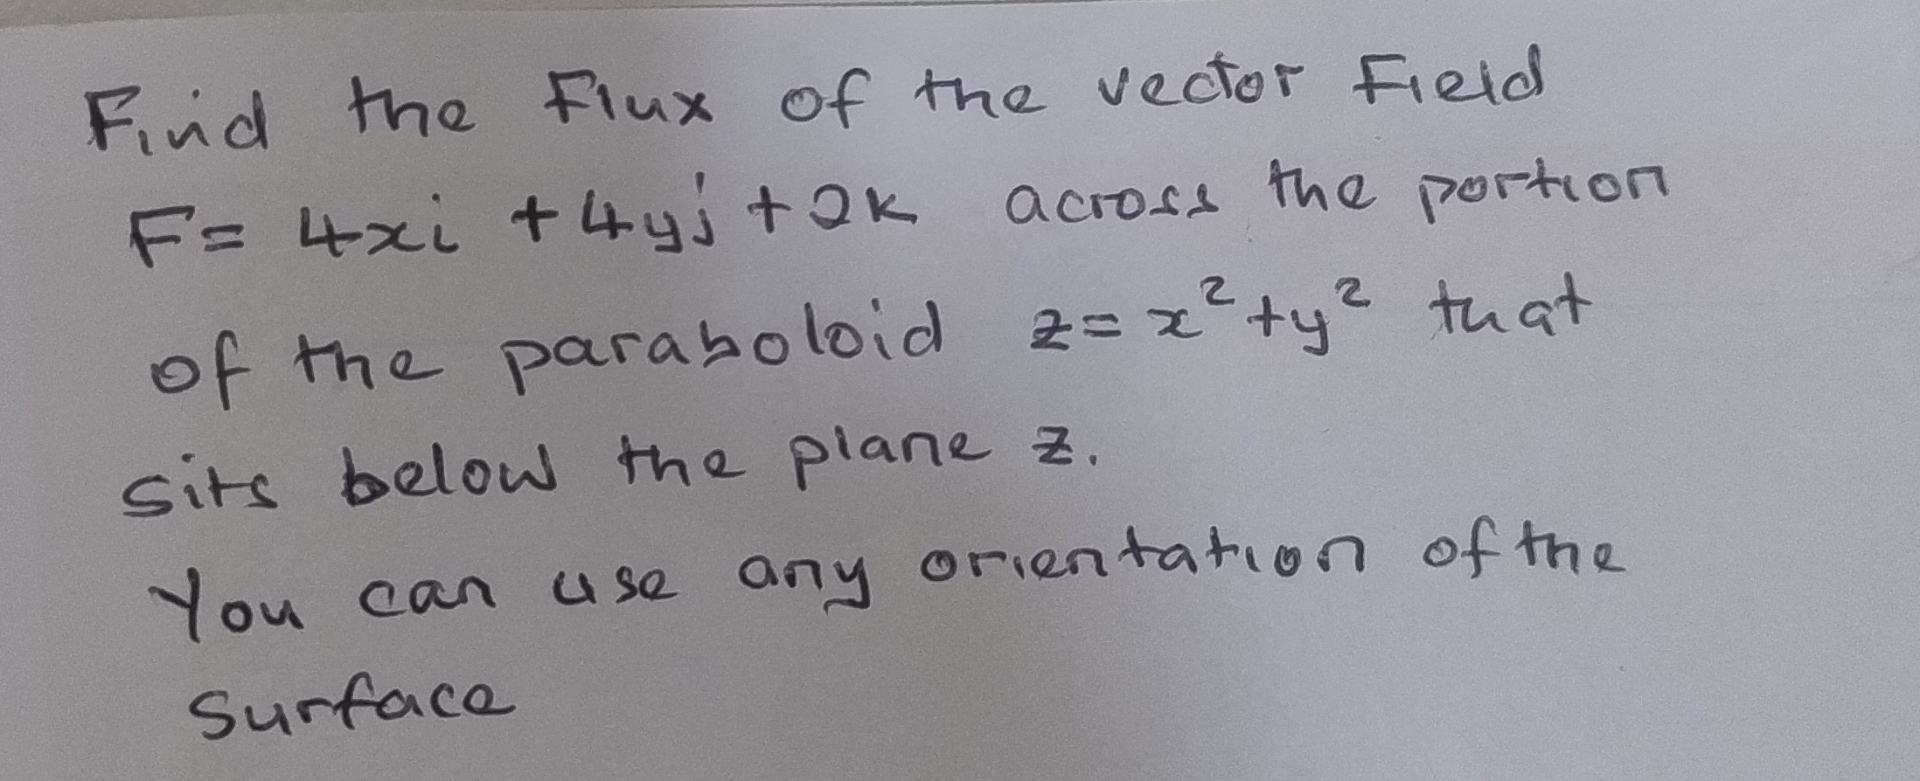 Find the Flux of the vector Field
F= 4xi + 4yj + 2k across the portion
of the paraboloid z = x² + y² that
sits below the plane z.
You can use any orientation of the
surface